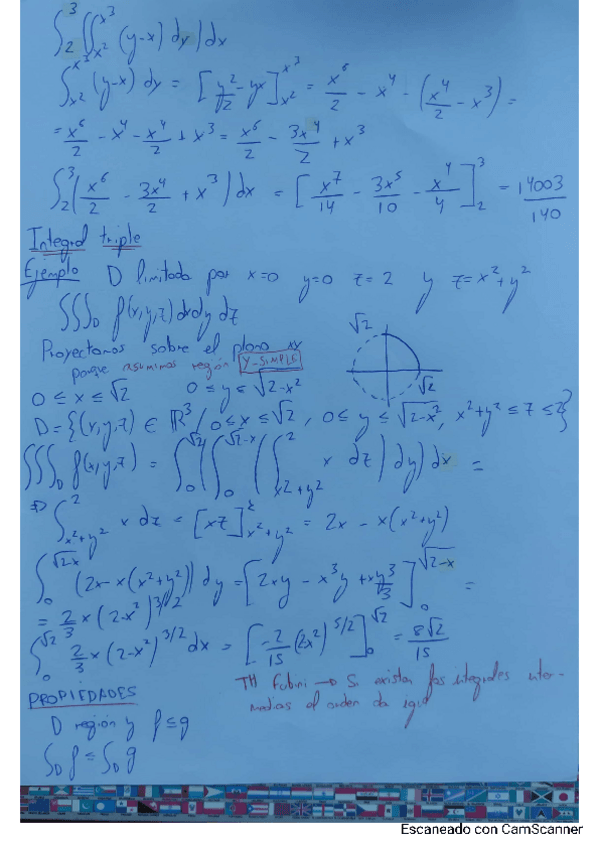 ∫₂³ (∫_{x²}^{x³} (y-x) dy) dx
∫_{x²}^{x³} (y-x) dy = [y²/2 - yx]_{x²}^{x³} = x⁶/2 - x⁴ - (x⁴/2 - x³) =
= x⁶/2 - x⁴ - x⁴/2 + x³ = x⁶/2 - 3x⁴/2 + x³
∫₂³ (x⁶/2 - 3x⁴/2 + x³) dx = [x⁷/14 - 3x⁵/10 - x⁴/4]₂³ = 14003/140
Integral triple
Ejemplo D limitada por x=0 y=0 z=2 y z=x²+y²
∭_D f(x,y,z) dxdy dz
Proyectamos sobre el plano xy
porque asumimos región y-SIMPLE
√2
√2
0 ≤ x ≤ √2 0 ≤ y ≤ √(2-x²)
D = {(x,y,z) ∈ ℝ³ / 0≤x≤√2, 0≤ y ≤ √(2-x²), x²+y² ≤ z ≤ 2}
∭_D f(x,y,z) = ∫₀^{√2} (∫₀^{√(2-x)} (∫_{x²+y²}^{2} x dz) dy) dx =
⇒ ∫_{x²+y²}^{2} x dz = [xz]_{x²+y²}^{2} = 2x - x(x²+y²)
∫₀^{√(2x)} (2x - x(x²+y²)) dy = [2xy - x³y + xy³/3]₀^{√(2-x)} =
= 2/3 x (2-x²)^{3/2}
∫₀^{√2} 2/3 x (2-x²)^{3/2} dx = [-2/15 (2x²)^{5/2}]₀^{√2} = 8√2/15
TH Fubini → Si existen las integrales inter-
medias el orden da igual
PROPIEDADES
D región y f ≤ g
∫_D f ≤ ∫_D g
Escaneado con CamScanner